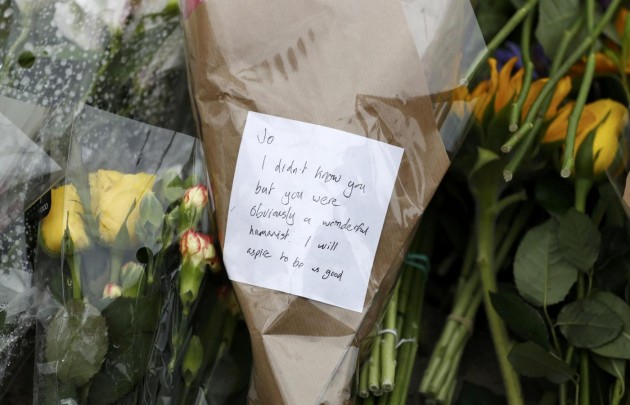 Jo
I didn't know you
but you were
obviously a wonderful
humanist I will
aspire to be as good